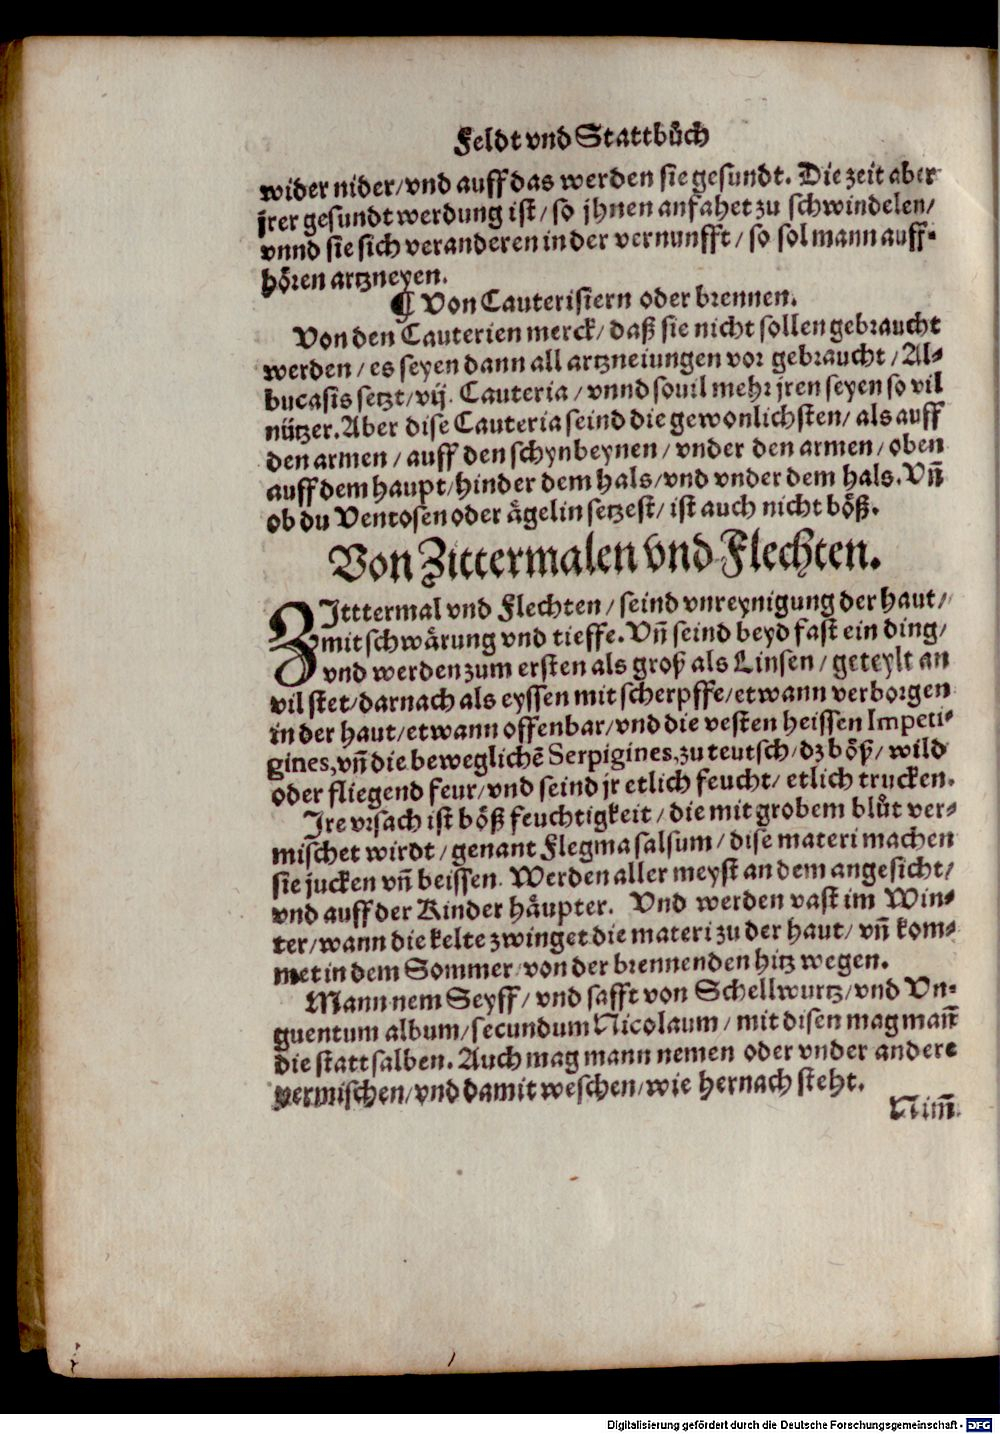 Feldt vnd Stattbůch
wider nider/vnd auff das werden sie gesundt. Die zeit aber
jrer gesundt werdung ist/ so jhnen anfahet zu schwindelen/
vnnd sie sich veranderen in der vernunfft/ so sol mann auff-
hören artzneyen.
¶ Von Cauterisiern oder brennen.
Von den Cauterien merck/ daß sie nicht sollen gebraucht
werden/ es seyen dann all artzneiungen vor gebraucht/ Al-
bucasis setzt/ vij. Cauteria/ vnnd souil mehr jren seyen so vil
nützer. Aber dise Cauteria seind die gewonlichsten/ als auff
den armen/ auff den schynbeynen/ vnder den armen/ oben
auff dem haupt/ hinder dem hals/ vnd vnder dem hals. Vñ
ob du Ventosen oder ägelin setzest/ ist auch nicht böß.
Von Zittermalen vnd Flechten.
ZItttermal vnd Flechten/ seind vnreynigung der haut/
mit schwärung vnd tieffe. Vñ seind beyd fast ein ding/
vnd werden zum ersten als groß als Linsen/ geteylt an
vil stet/ darnach als eyssen mit scherpffe/ etwann verborgen
in der haut/ etwann offenbar/ vnd die vesten heissen Impeti-
gines, vñ die beweglichē Serpigines, zu teutsch/ dz böß/ wild
oder fliegend feur/ vnd seind jr etlich feucht/ etlich trucken.
Ire vrsach ist böß feuchtigkeit/ die mit grobem blůt ver-
mischet wirdt/ genant Flegma salsum/ dise materi machen
sie jucken vñ beissen. Werden aller meyst an dem angesicht/
vnd auff der Kinder häupter. Vnd werden vast im Win-
ter/ wann die kelte zwinget die materi zu der haut/ vñ kom-
met in dem Sommer/ von der brennenden hitz wegen.
Mann nem Seyff/ vnd safft von Schellwurtz/ vnd Vn-
guentum album/ secundum Nicolaum/ mit disen mag mañ
die statt salben. Auch mag mann nemen oder vnder andere
vermischen/ vnd damit weschen/ wie hernach steht.
Nim̃
Digitalisierung gefördert durch die Deutsche Forschungsgemeinschaft - DFG